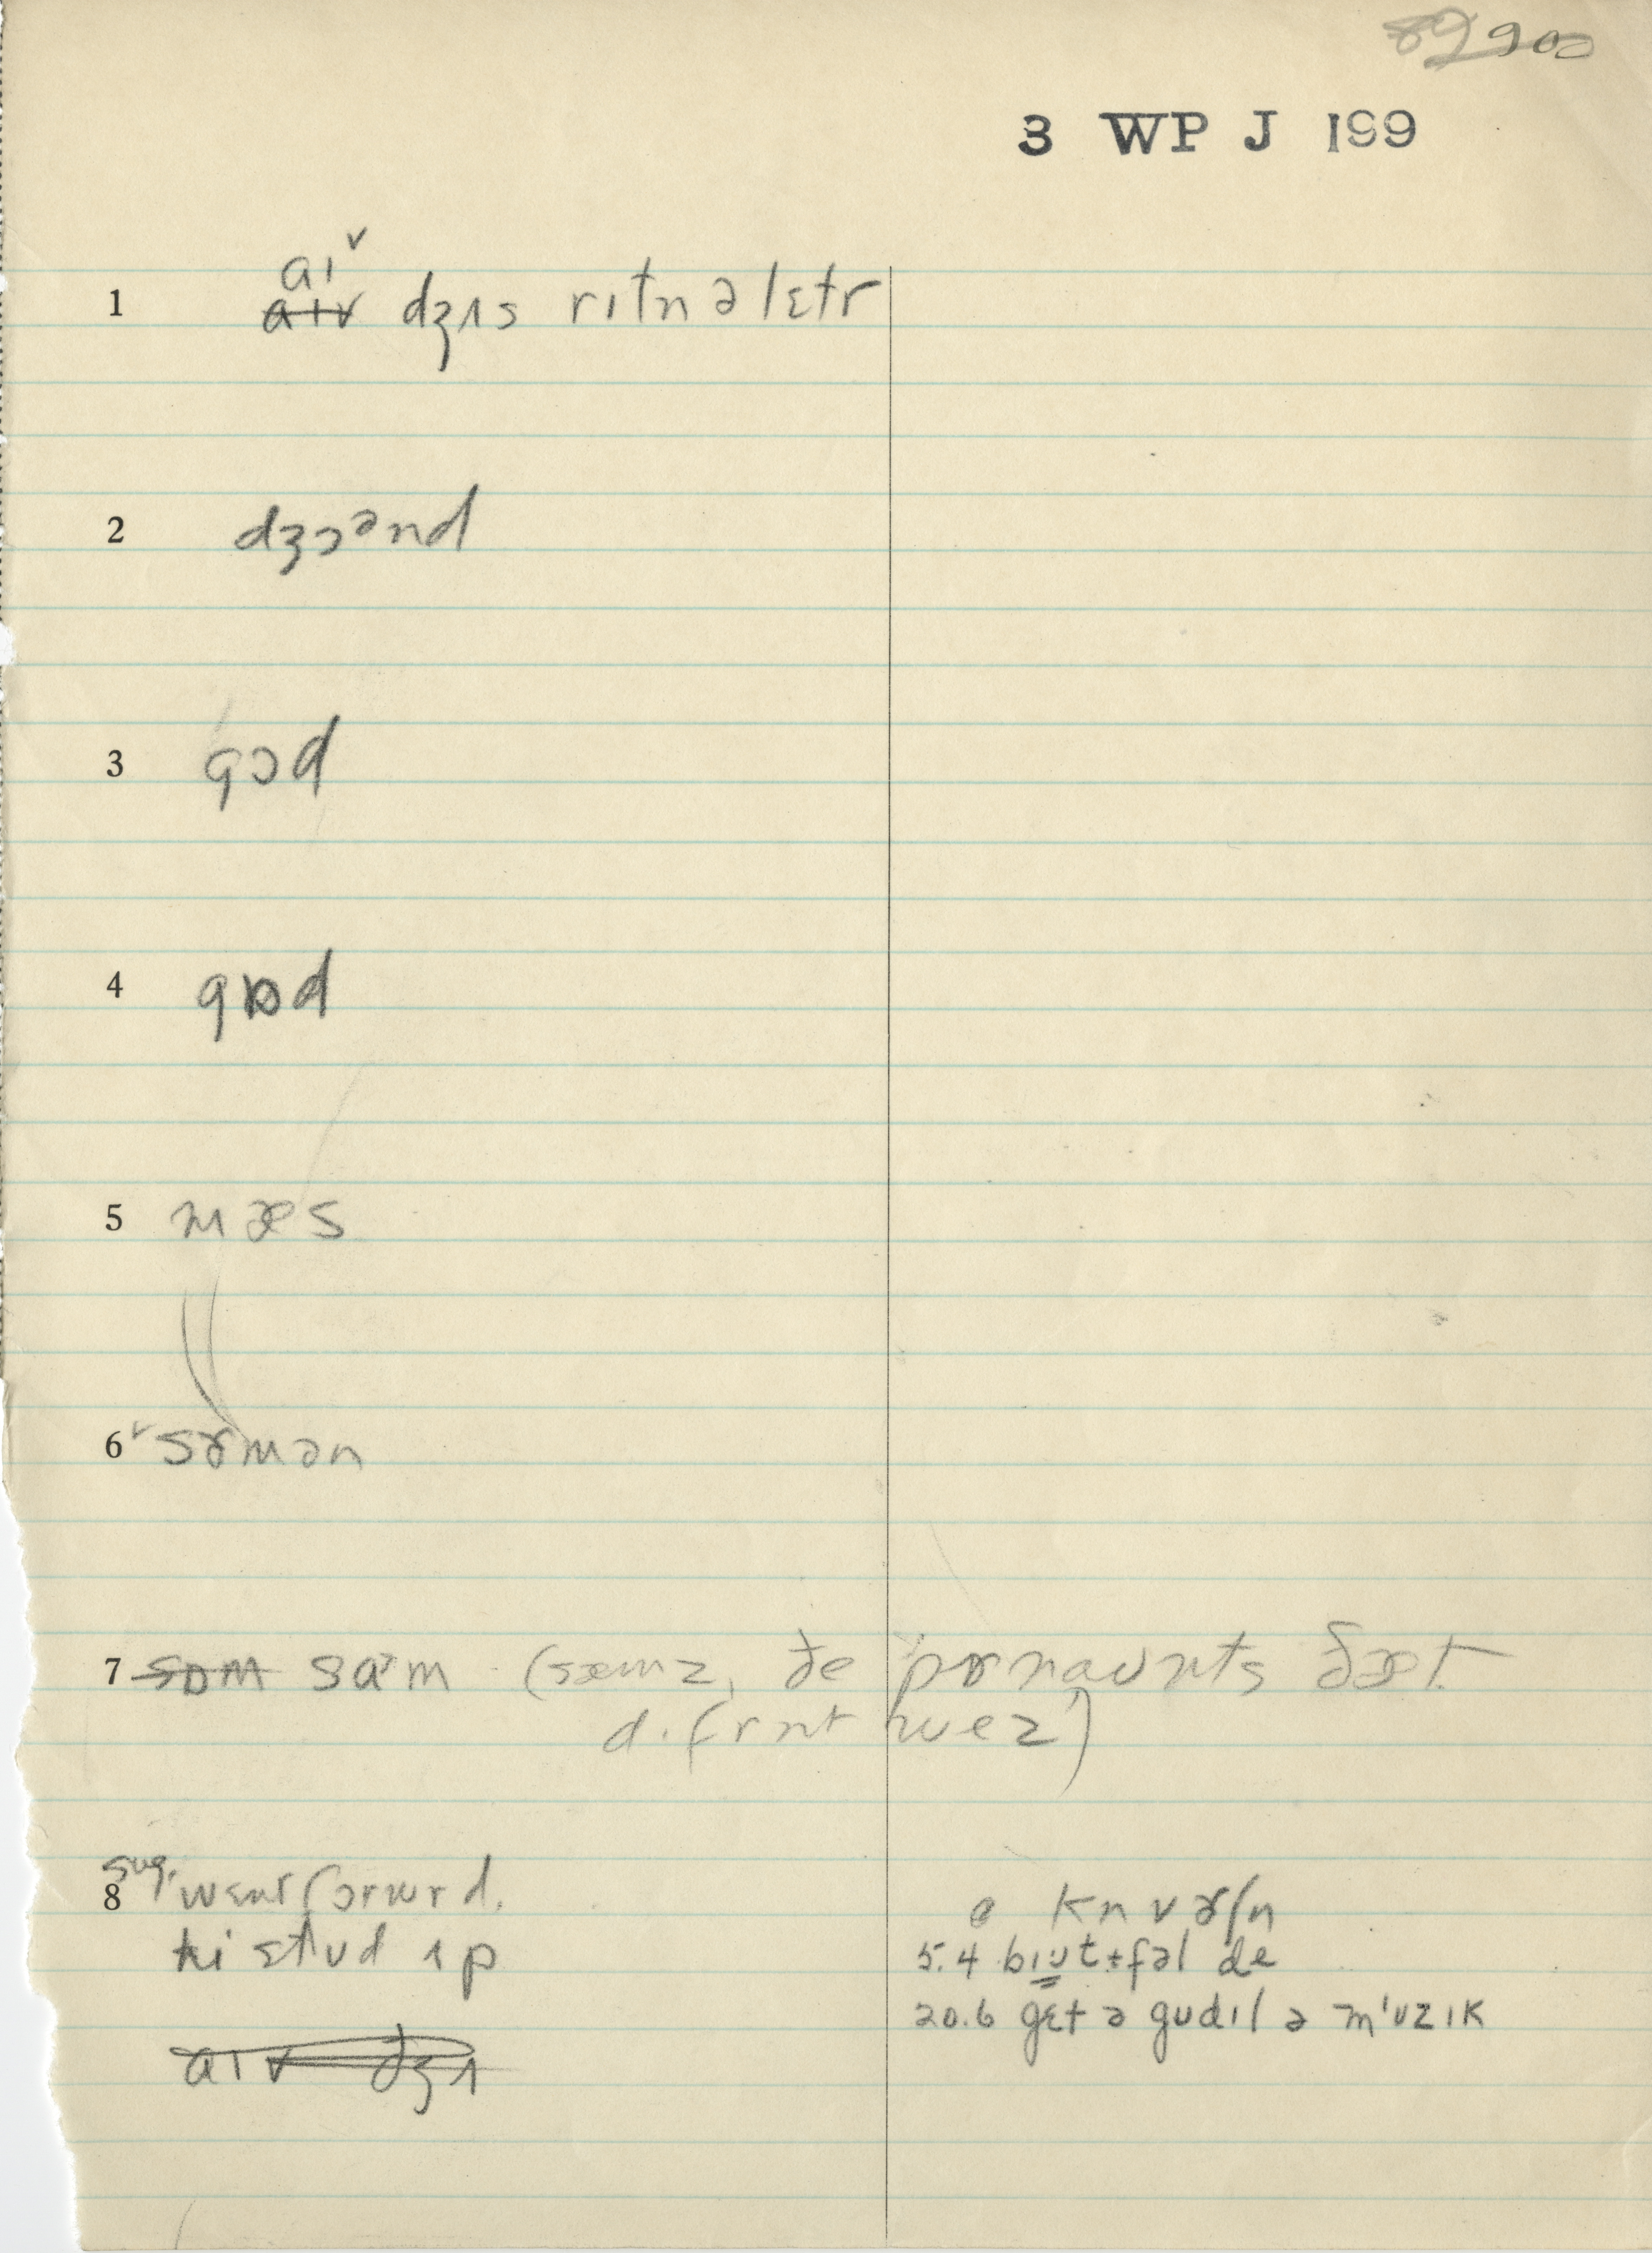 900
3 WP J 199
aɪ ᵛ
1 aɪv dʒʌs rɪtn ə lɛtr
2 dʒɔᵊnd
3 gɔd
4 gɒd
5 mæs
6 ᵛ sɚmən
7 sɒm sɑᵊm (sæmz, ðe prənaunts ðæt
dɪfrnt wez)
8 sug. wɛnt fɔrwrd.
hi stud ʌp
ə knvɚʃn
5.4 bɪutɨfəl de
20.6 gɛt ə gudɪl ə m'uzɪk
aɪv dʒʌ